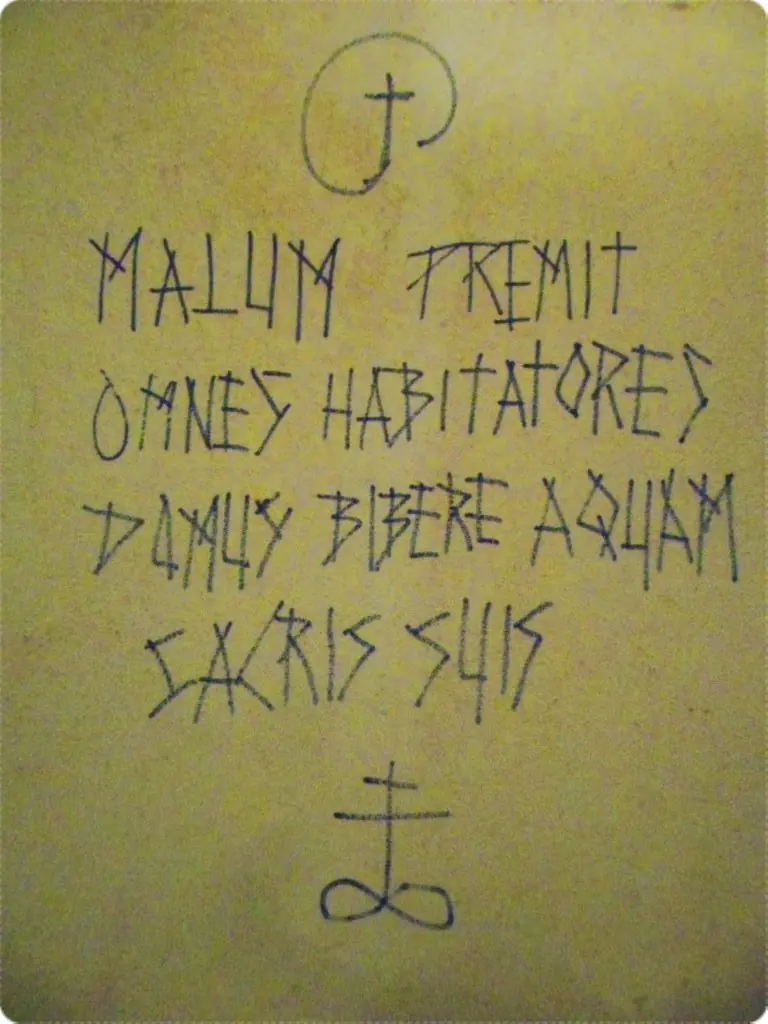 MALUM PREMIT
OMNES HABITATORES
DOMUS BIBERE AQUAM
SACRIS SUIS